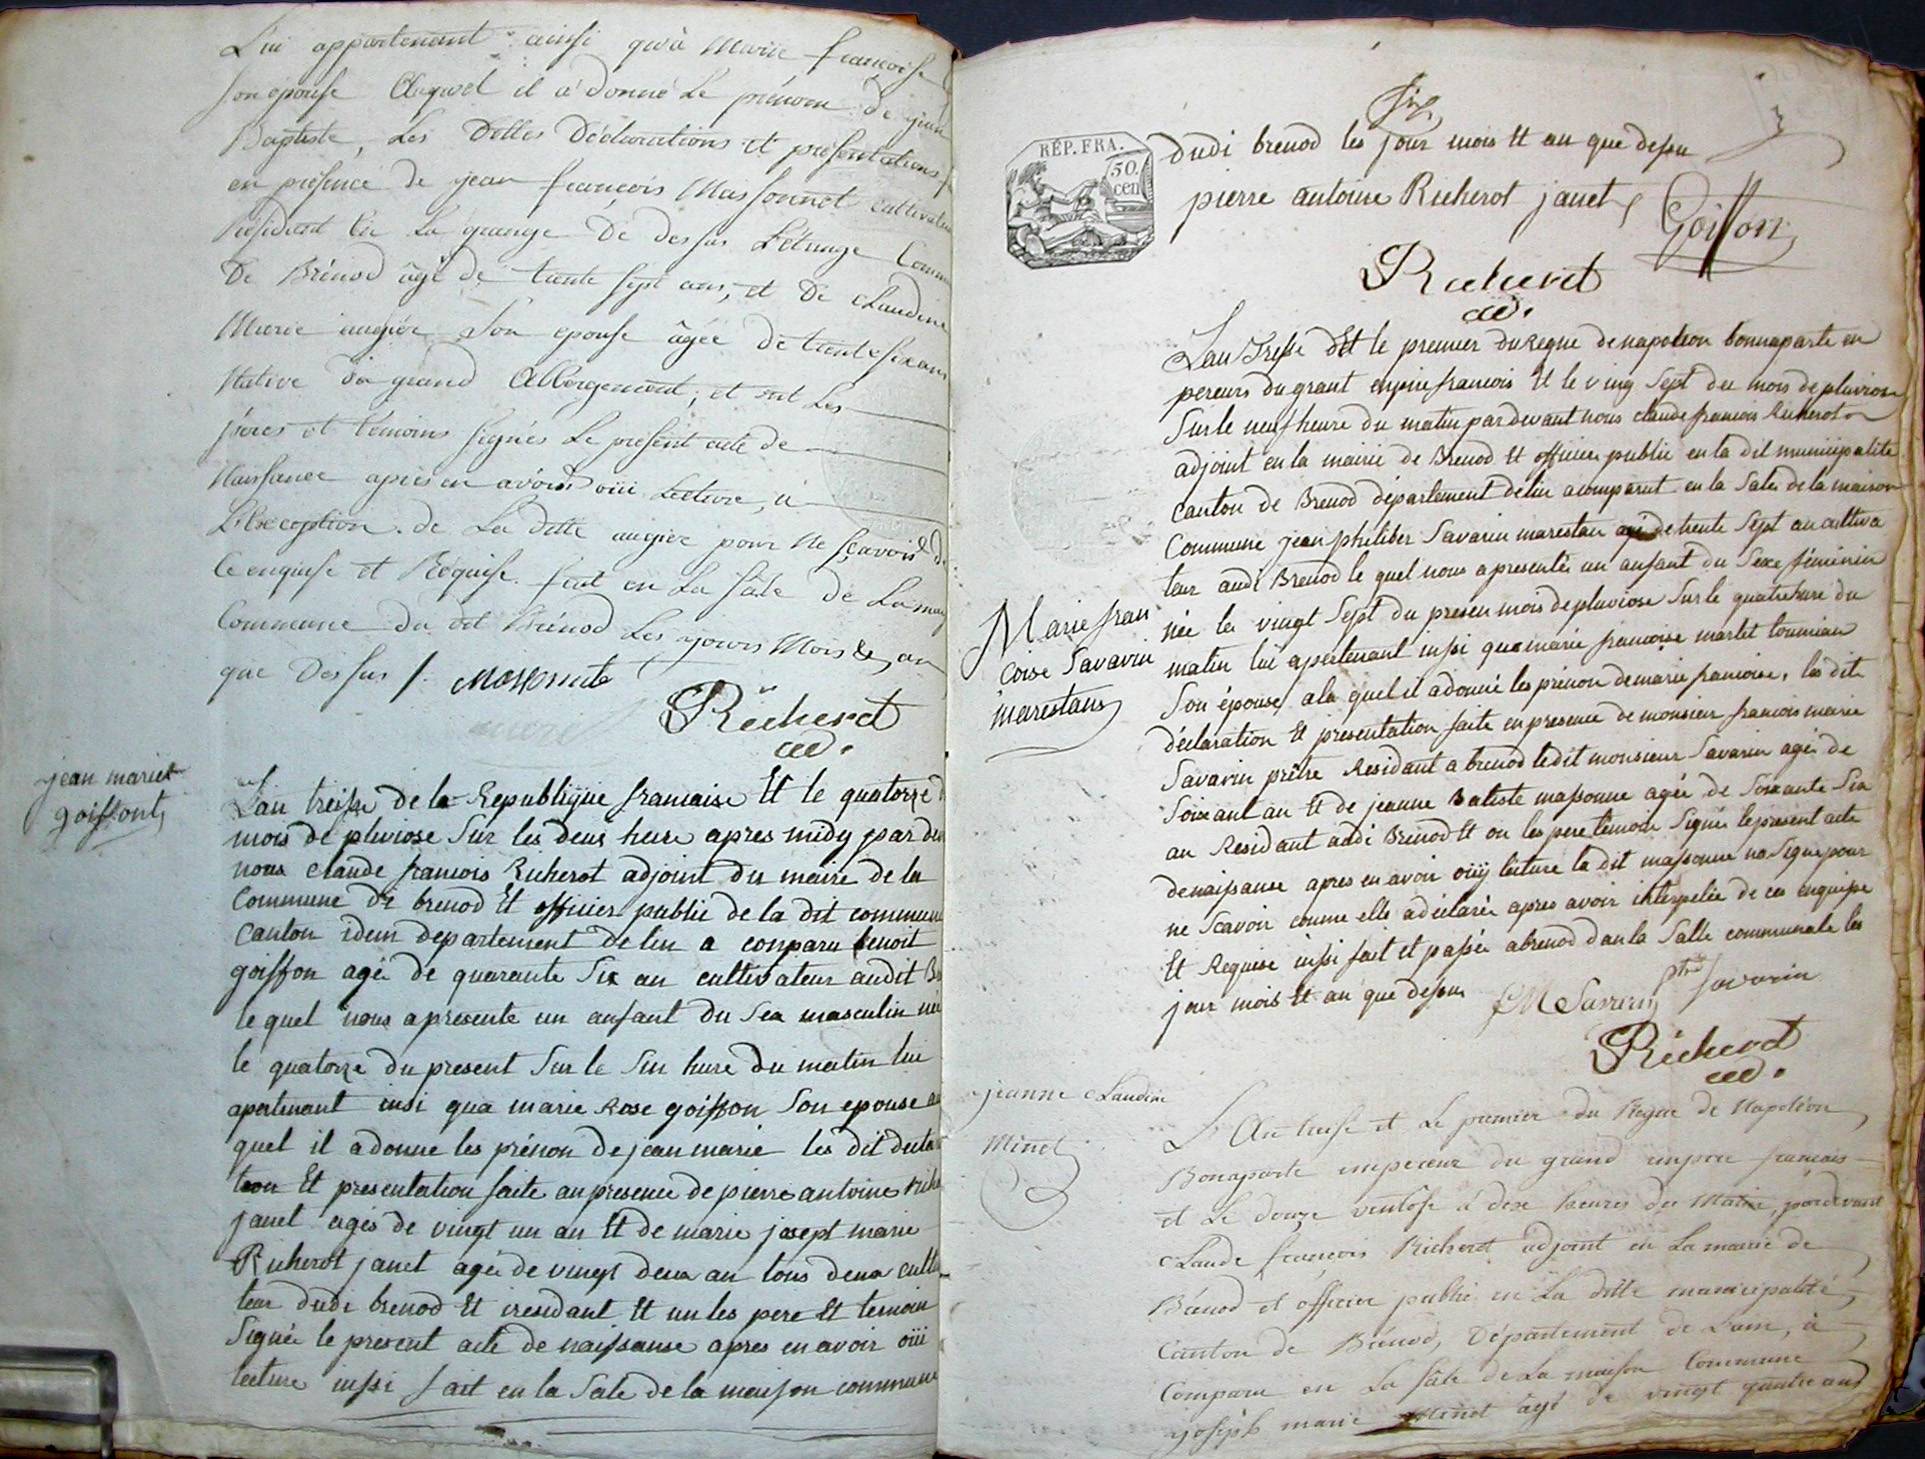 Lui appartenant ainsi qu'à Marie françoise
son épouse Auquel il a donné Le prénom de jean
Baptiste, Les dittes Déclarations et présentations
en présence de jean françois Massonnet cultivateur
Résident en La grange De dessus L'étange Commune
De Brénod âgé de trente sept ans, et De Claudine
Marie augier Son epouse âgée de trente six ans
Native du grand Abbergement, et ont Les
pères et témoins signés Le présent acte de
Naissance après en avoir oüi Lecture, à
L'Exception de La ditte augier pour Ne sçavoir de
ce enquise et Réquise fait en La sâle de La maison
Commune du dit Brénod Les jours Mois & an
que Dessus /. Massonnete
Richerot
adt.
jean mariet
goiffont
Lan treise de la Republiqüe francaise Et le quatorze d
mois de pluviose Sur les deus heure apres midy par dev
nous claude francois Richerot adjoint du maire de la
Commune de brenod Et officier public de la dit commune
Canton idem departement de lin a conparu benoit
goiffon agé de quarante Six an cultivateur audit B
le quel nous apresente un anfant du Sex masculin nee
le quatorze du present Sur le Sin hure du matin lui
apertenant insi qua marie Rose goiffon Son epouse au
quel il adonne les prénon de jean marie les dit decla
tion Et presentation faite an presence de pierre antoine Riche
janet agés de vingt un an Et de marie josept marie
Richerot janet agée de vingt deux an tous deux cultiv
teur dudi brenod Et iresidant Et un les pere Et temoin
Signée le present acte de naissanse apres en avoir oüi
lecture inssi fait en la Sale de la maison commune
3
RÉP. FRA.
50. cen
dudi brenod les jour mois Et an que dessu
pierre antoine Richerot janet Goiffon
Richerot
adt.
Lan Tresse Et le premier du Regne de napoleon bonnaparte en
pereurs du grant enpire francois Et le ving Sept deu mois de pluviose
Sur le neuf heure du matin par devant nous claude francois Richerot
adjoint en la mairie de Brenod Et officier public en la dit municipalite
Canton de Brenod département de lin acomparut en la Sale de la maison
Commune jean philiber Savarin marestan agé de trente Sept an cultiva
teur audi Brenod le quel nous apresentée un anfant du Sexe féminin
Marie fran
coise Savarin
marestans
née le vingt Sept du presen mois de pluviose Sur le quatre hure du
matin lui apertenant inssi qua marie francoise martet tournian
Son épouse, ala quel il adonné les prénon de marie francoise, les dit
déclaration Et presentation faite en presence de monsieur francois marie
Savarin prêtre Residant a brenod ledit monsieur Savarin agée de
Soixant an Et de jeanne Batiste massonne agée de Soixante Six
an Residant audi Brenod Et on les pere temoin Signée le present acte
de naissanse apres en avoir oüy lecture la dit massonne na Signe pour
ne Scavoir comme elle adéclarée apres avoir interpelée de ces enquise
Et Requise inssi fait et passée abrenod dan la Salle communale les
jour mois Et an que dessus fM Savarin ptre Savarin
Richerot
adt.
jeanne Claudine
Minet
L'An treise et Le premier du Regne de Napoléon
Bonaparte empereur du grand empire francais
et Le douze ventose à dixe heures du Matin, pardevant
Claude françois Richerot adjoint en La mairie de
Brénod et officier public en La ditte municipalité,
Canton de Brénod, Département de L'ain, à
Comparu en La sâle de La maison Commune
joseph marie Minet âgé de vingt quatre ans